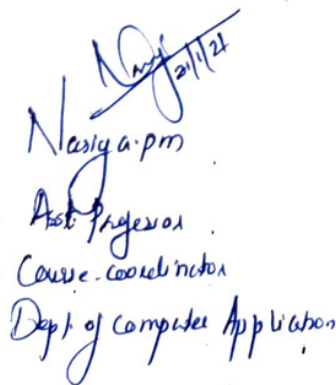 21/1/21
Nasiya.pm
Asst. Professor
Course-coordinator
Dept of Computer Application